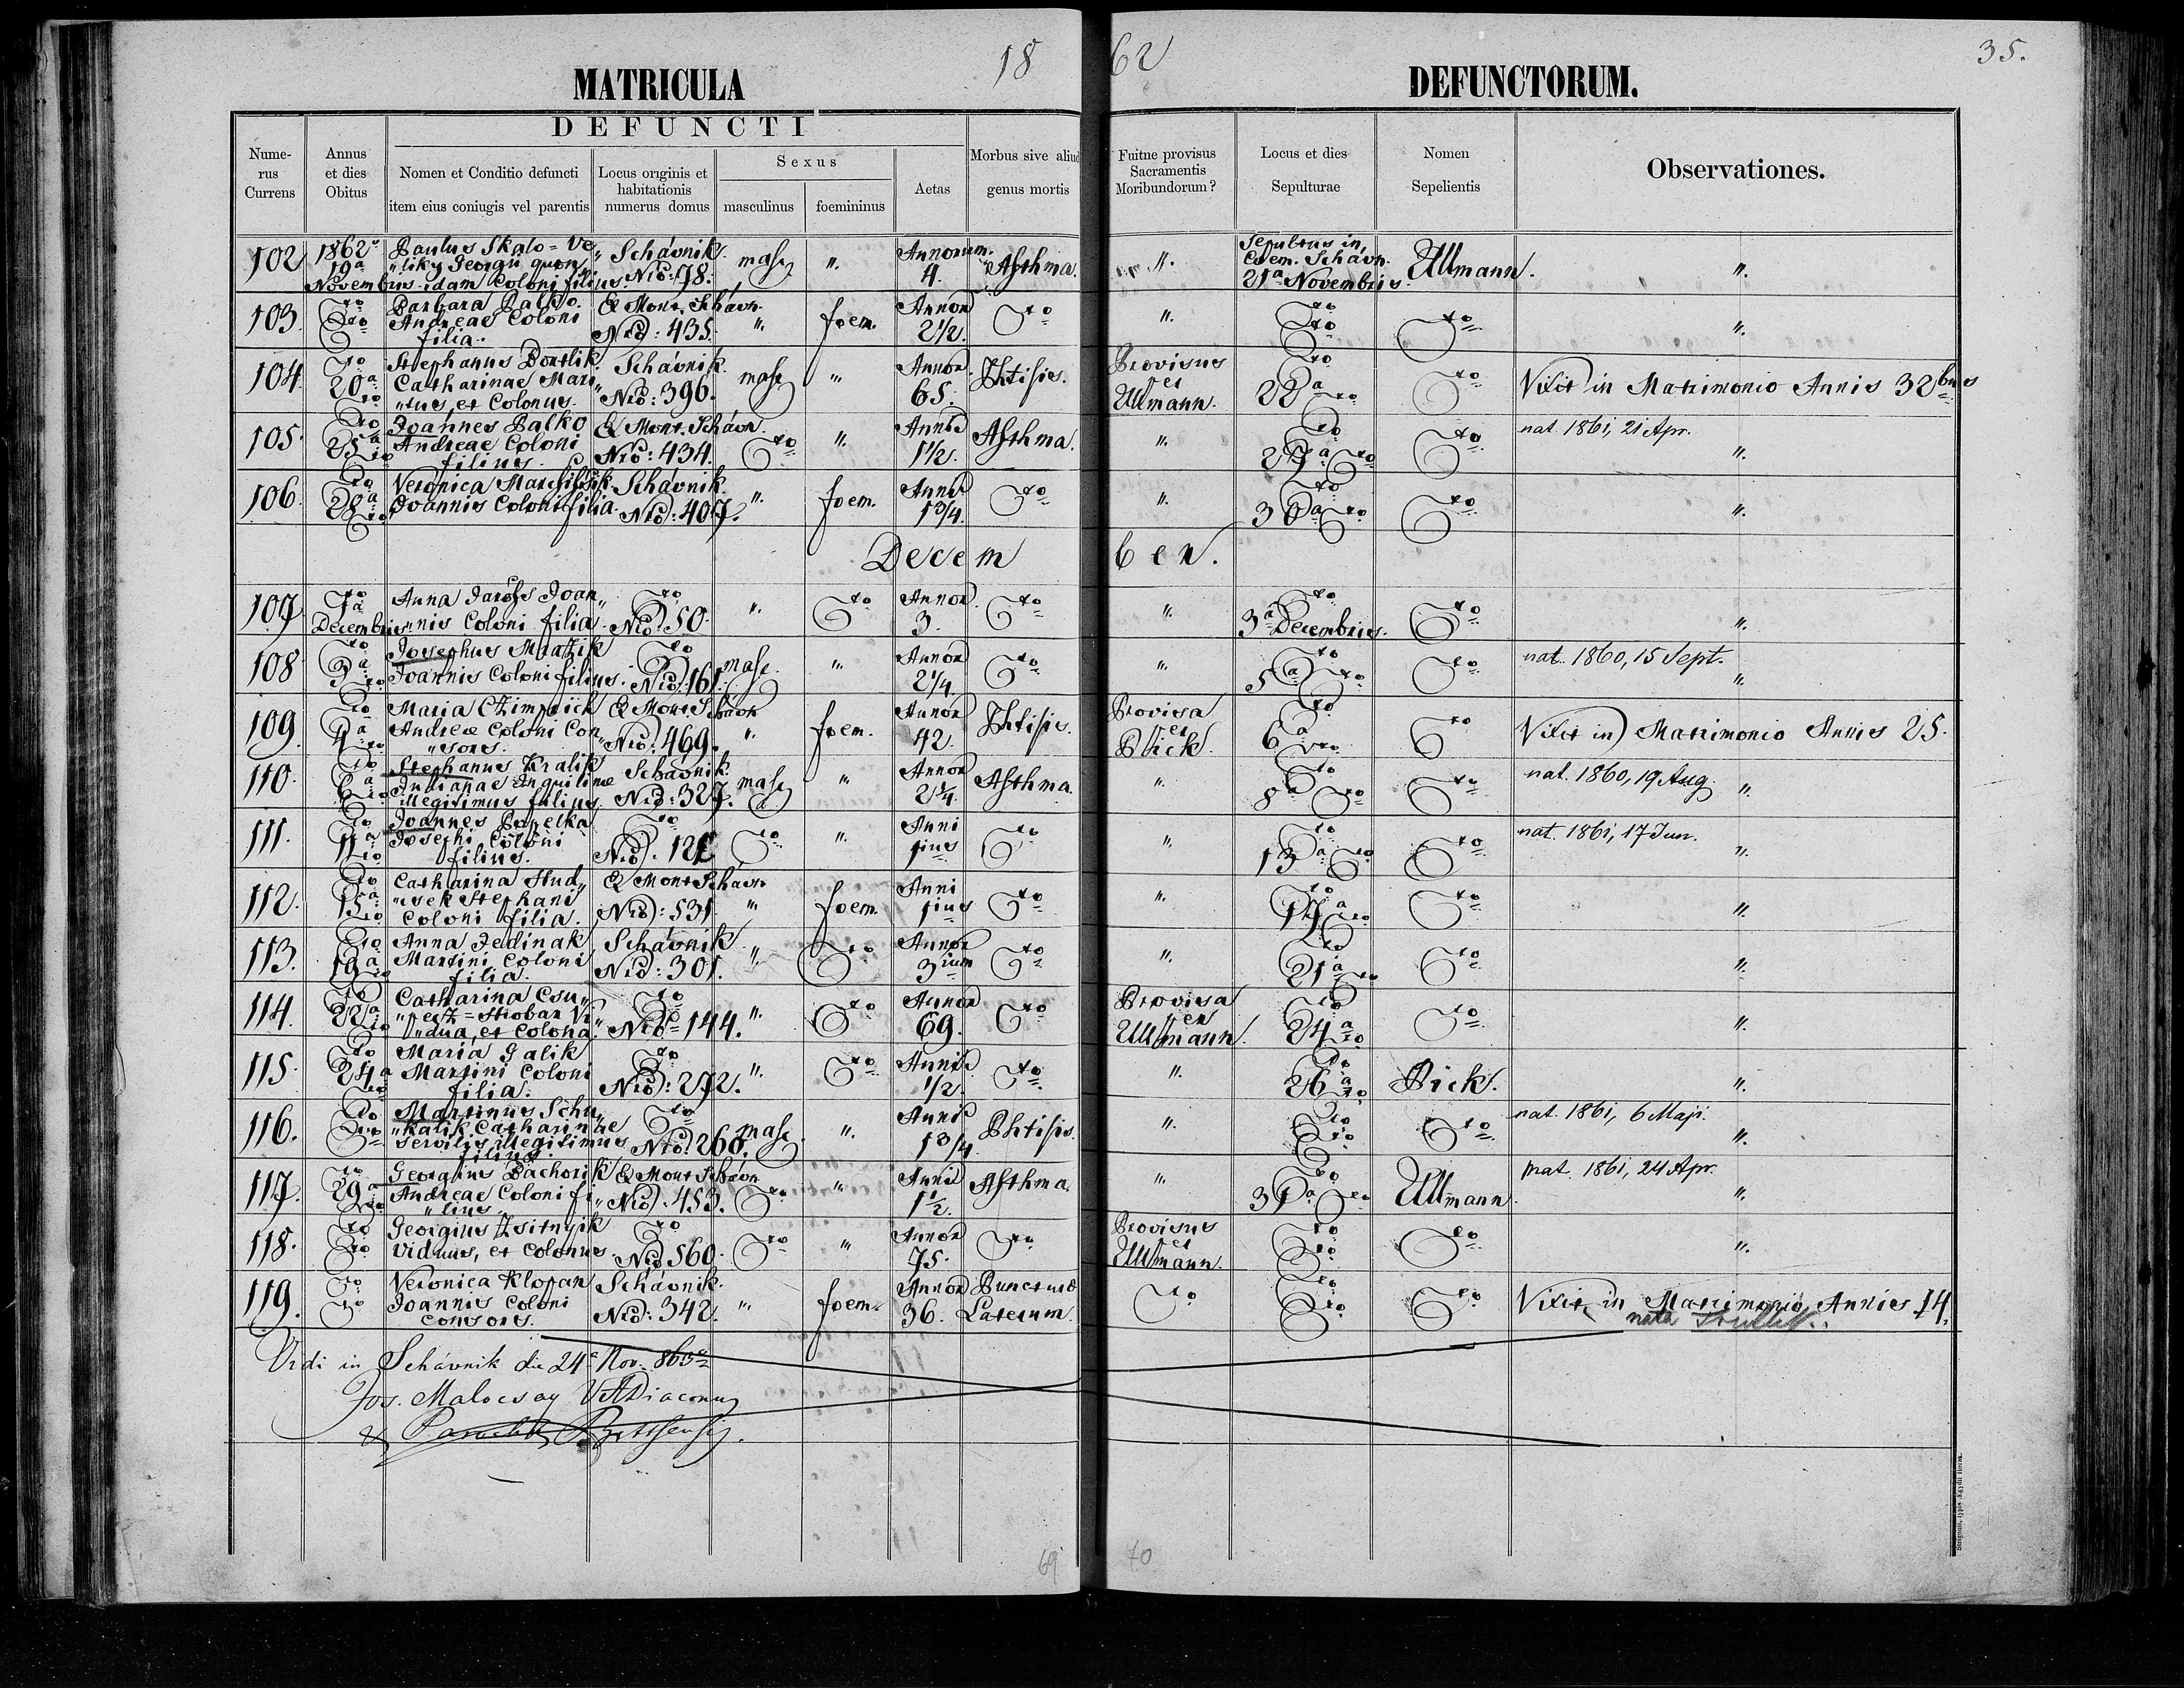 18 62 35.
MATRICULA DEFUNCTORUM.
DEFUNCTI
Nume-
rus
Currens
Annus
et dies
Obitus
Nomen et Conditio defuncti
item eius coniugis vel parentis
Locus originis et
habitationis
numerus domus
Sexus
masculinus foemininus
Aetas
Morbus sive aliud
genus mortis
Fuitne provisus
Sacramentis
Moribundorum?
Locus et dies
Sepulturae
Nomen
Sepelientis
Observationes.
102 1862 19a Novembris Paulus Skalo=Ve„
„liky Georgii quon„
„idam Coloni filius. Schávnik. Nro: 78. masc ". Annorum. 4. Asthma. ". Sepultus in Coem. Schávn. 21a Novembris. Ullmann. ".
103. Dto Dto Barbara Palko.
Andreae Coloni
filia. E Mont. Schávn. Nro: 435. ". foem. Annor 2 1/2. Dto ". Dto Dto Dto ".
104. Dto 20a Dto Stephanus Bortlik
Catharinae Mari„
„tus, et Colonus. Schávnik. Nro: 396. masc " Annor. 65. Phtisis. Provisus er Ullmann. Dto 22a Dto Dto Vixit in Matrimonio Annis 32bus
105. Dto 25a Dto Joannes Palko
Andreae Coloni
filius. E Mont. Schávn. Nro: 434. Dto ". Anni 1 1/2. Asthma. ". Dto 27a Dto Dto nat. 1861, 21 Apr. ".
106. Dto 28a Dto Veronica
Joannis Coloni filia. Schávnik. Nro: 407. ". foem. Anni 1 3/4. Dto ". Dto 30a Dto Dto ".
Decem ber.
107. Dto 1a Decembris Anna Joan„
„nis Coloni filia. Dto Nro: 50. ". Dto Annor 3. Dto ". Dto 3a Decembris. Dto ".
108 Dto 3a Dto Josephus
Joannis Coloni filius. Dto Nro: 161. masc. ". Annor 2 1/4. Dto ". Dto 5a Dto Dto nat. 1860, 15 Sept. ".
109. Dto 4a Dto Maria
Andreae Coloni Con„
„sors. E Mont. Schávn Nro: 469. ". foem. Annor 42. Phtisis. Provisa er Bick. Dto 6a Dto Dto Vixit in Matrimonio Annis 25.
110. Dto 6a Dto Stephanus Kralik
Julianae Inquilinae
illegitimus filius. Schávnik. Nro: 327. masc " Annor 2 1/4. Asthma. ". Dto 8a Dto Dto nat. 1860, 19 Aug. ".
111. Dto 11a Dto Joannes Popelka
Josephi Coloni
filius. Dto Nro. 121 Dto ". Anni 1ius Dto ". Dto 13a Dto Dto nat. 1861, 17 Jun. ".
112. Dto 15a Dto Catharina Hud„
„csek Stephani
Coloni filia. E Mont Schávn Nro: 531. " foem. Anni 1ius Dto ". Dto 17a Dto Dto ".
113. Dto 19a Dto Anna Jedinak
Martini Coloni
filia. Schávnik Nro: 301. ". Dto Annor 3ium Dto ". Dto 21a Dto Dto ".
114. Dto 22a Dto Catharina Csu„
„Vi„
„dua, et Colona. Dto Nro: 144. ". Dto Annor 69. Dto Provisa er Ullmann. Dto 24a Dto Dto ".
115. Dto 24a Dto Maria Galik
Martini Coloni
filia. Dto Nro: 272. ". Dto Anni 1/2. Dto ". Dto 26a Dto Bick. ".
116. Dto Dto Martinus Schu„
„kalik Catharinae
Servilis illegitimus
filius. Dto Nro: 260. masc. ". Anni 1 3/4. Phtisis. ". Dto Dto Dto nat. 1861, 6 Maji. ".
117. Dto 29a Dto Georgius Bachorik
Andreae Coloni fi„
„lius. E Mont Schávn Nro. 453. Dto " Anni 1 1/2. Asthma. ". Dto 31a Dto Ullmann. nat. 1861, 24 Apr. ".
118. Dto Dto Georgius Zsitnyik
Viduus, et Colonus. Dto Nro 560. Dto " Annor 75. Dto Provisus er Ullmann. Dto Dto Dto ".
119. Dto Dto Veronica Klopan
Joannis Coloni
Consors. Schávnik. Nro: 342. " foem. Annor 36. Punctura Laterum. Dto Dto Dto Dto Vixit in Matrimonio Annis 14.
nata
Vidi in Schávnik die 24a Nov. 863
Jos. Malocsay VADiaconus
69 70
Strigonii, typis Aegydii Horák.